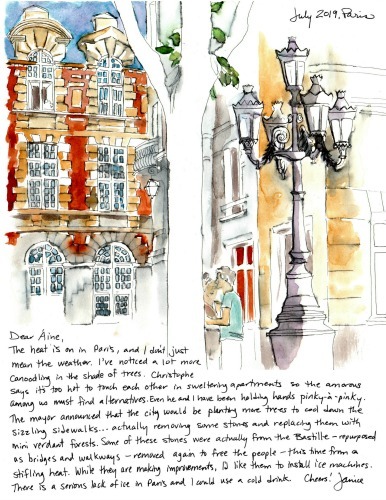 July 2019, Paris
Dear Áine,
The heat is on in Paris, and I don't just
mean the weather. I've noticed a lot more
canoodling in the shade of trees. Christophe
says it's too hot to touch each other in sweltering apartments so the amorous
among us must find alternatives. Even he and I have been holding hands pinky-à-pinky.
The mayor announced that the city would be planting more trees to cool down the
sizzling sidewalks... actually removing some stones and replacing them with
mini verdant forests. Some of these stones were actually from the Bastille - repurposed
as bridges and walkways - removed again to free the people - this time from a
stifling heat. While they are making improvements, I'd like them to install ice machines.
There is a serious lack of ice in Paris and I could use a cold drink. Cheers! Janice